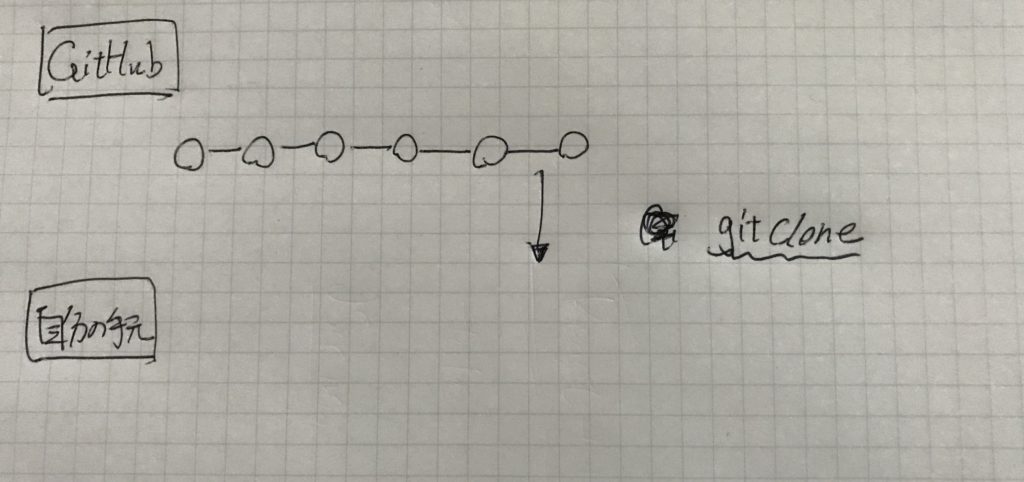 GitHub
git clone
自分の手元